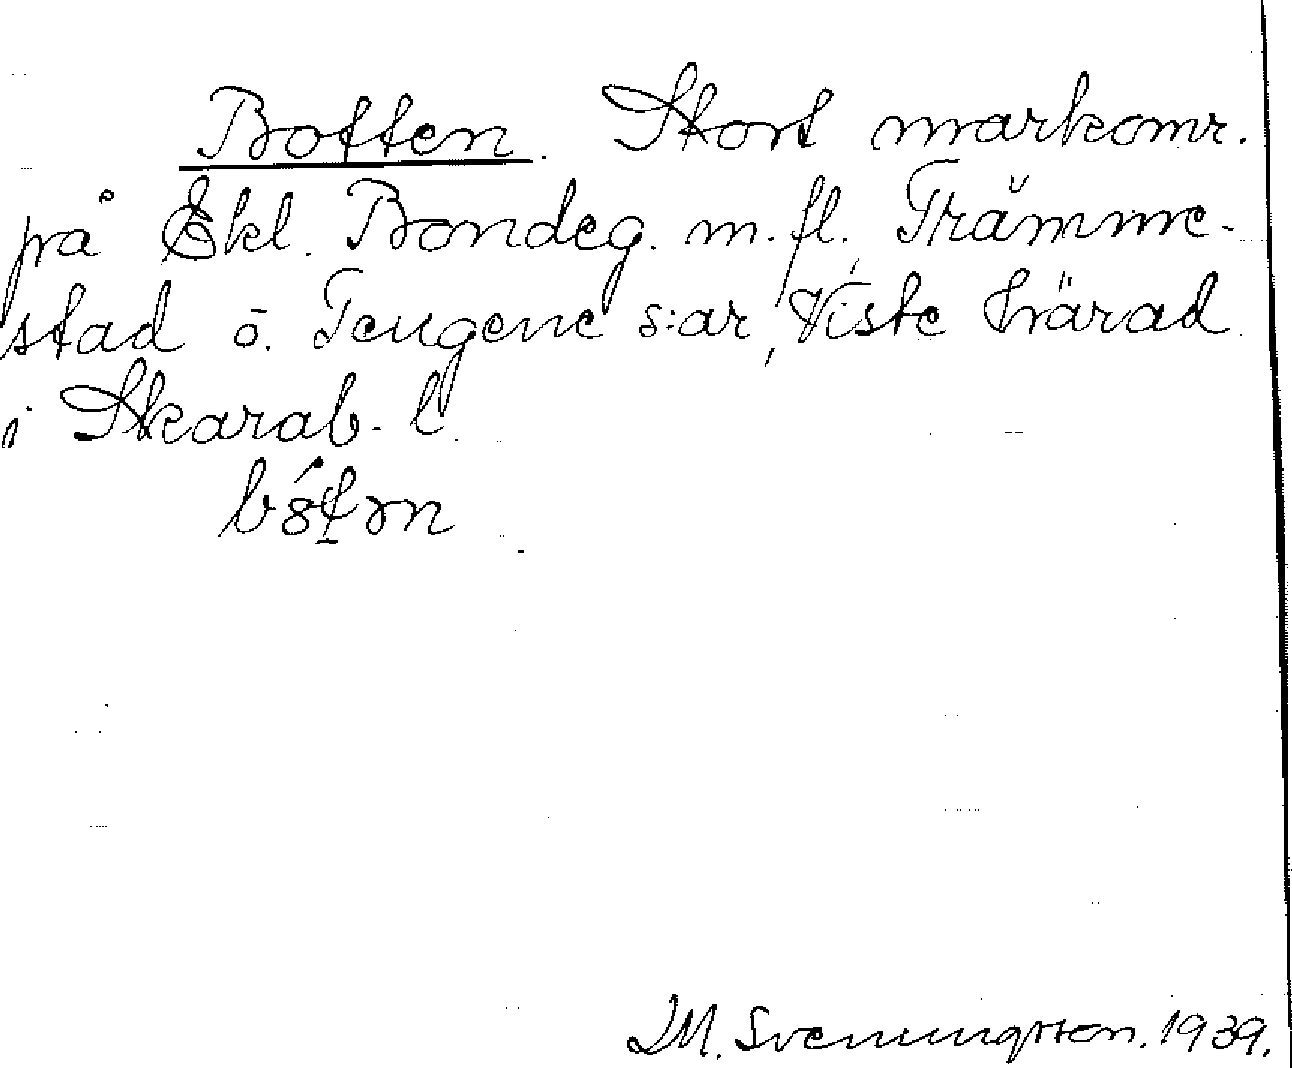 Botten. Stort markomr.
på Ekl. Bondeg. m. fl. Främme-
stad o. Tengene s:ar, Viste härad
i Skarab. l.
M. Svenungsson. 1939.